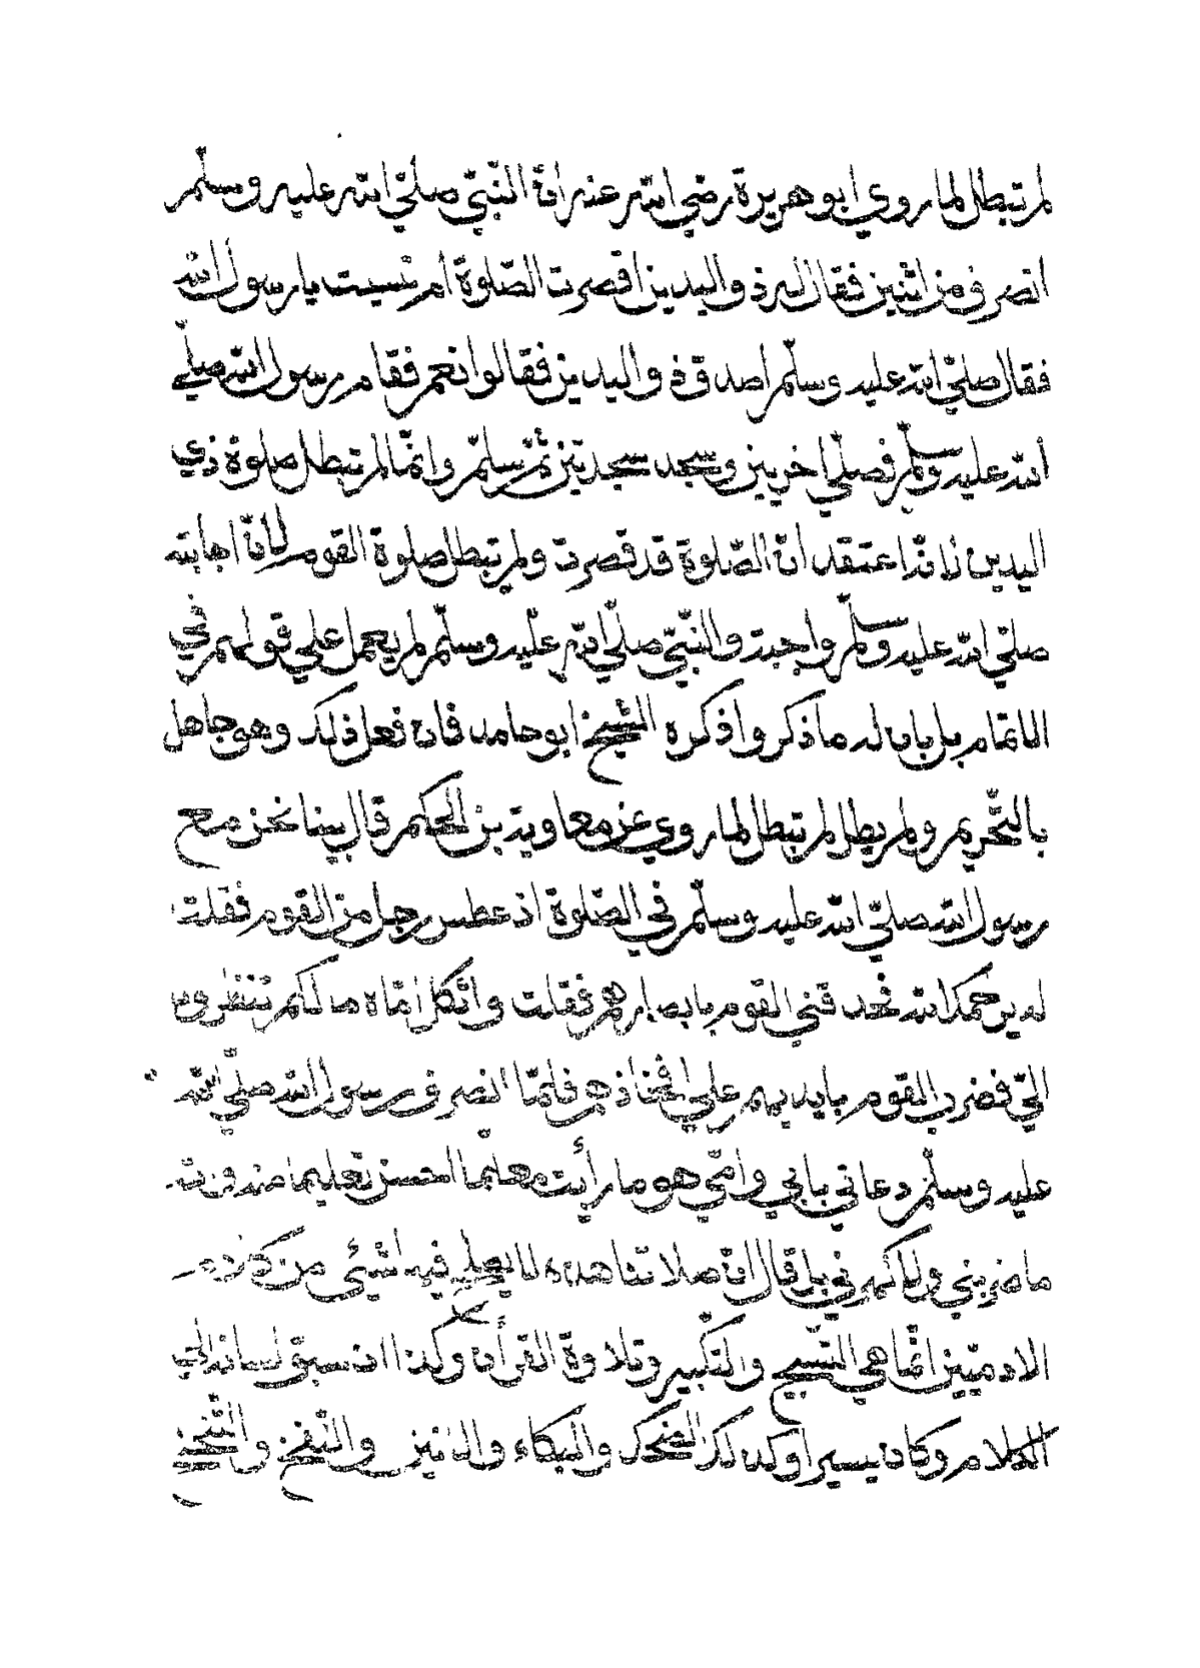 لم تبطل لما روي ابو هريرة رضي الله عنه أنّ النّبيّ صلّي الله عليه وسلّم
انصرف من اثنين فقال له ذو اليدين اقصرت الصّلوة أم نسيت يا رسول الله
فقال صلّي الله عليه وسلّم اصدق ذو اليدين فقالوا نعم فقام رسول الله صلّي
الله عليه وسلّم فصلّي اخريين وسجد سجدتين ثمّ سلّم وانّما لم تبطل صلوة ذي
اليدين لانّه اعتقد انّ الصّلوة قد قصرت ولم تبطل صلوة القوم لانّ اجابته
صلّي الله عليه وسلّم واجبة والنّبيّ صلّي الله عليه وسلّم لم يعمل علي قولهم في
الاتمام بل بان له ما ذكروا ذكره الشّيخ ابو حامد فان فعل ذلك وهو جاهل
بالتّحريم ولم يطل لم تبطل لما روي عن معاوية بن الحكم قال بينا نحن مع
رسول الله صلّي الله عليه وسلّم في الصّلوة اذ عطس رجل من القوم فقلت
له يرحمك الله فحدقني القوم بابصارهم فقلت واثكل امّاه ما لكم تنظرون
اليّ فضرب القوم بايديهم علي افخاذهم فلمّا انصرف رسول الله صلّي الله
عليه وسلّم دعاني بابي وامّي هو ما رأيت معلّما احسن تعليما منه والله
ما ضربني ولا كهرني بل قال انّ صلاتنا هذه لا يصلح فيها شيئ من كلام
الادميّين انّما هي التّسبيح والتّكبير وتلاوة القرأن وكذا ان سبق لسانه الي
الكلام وكان يسيرا وكذلك الضّحك والبكاء والانين والنّفخ والتّنحنح